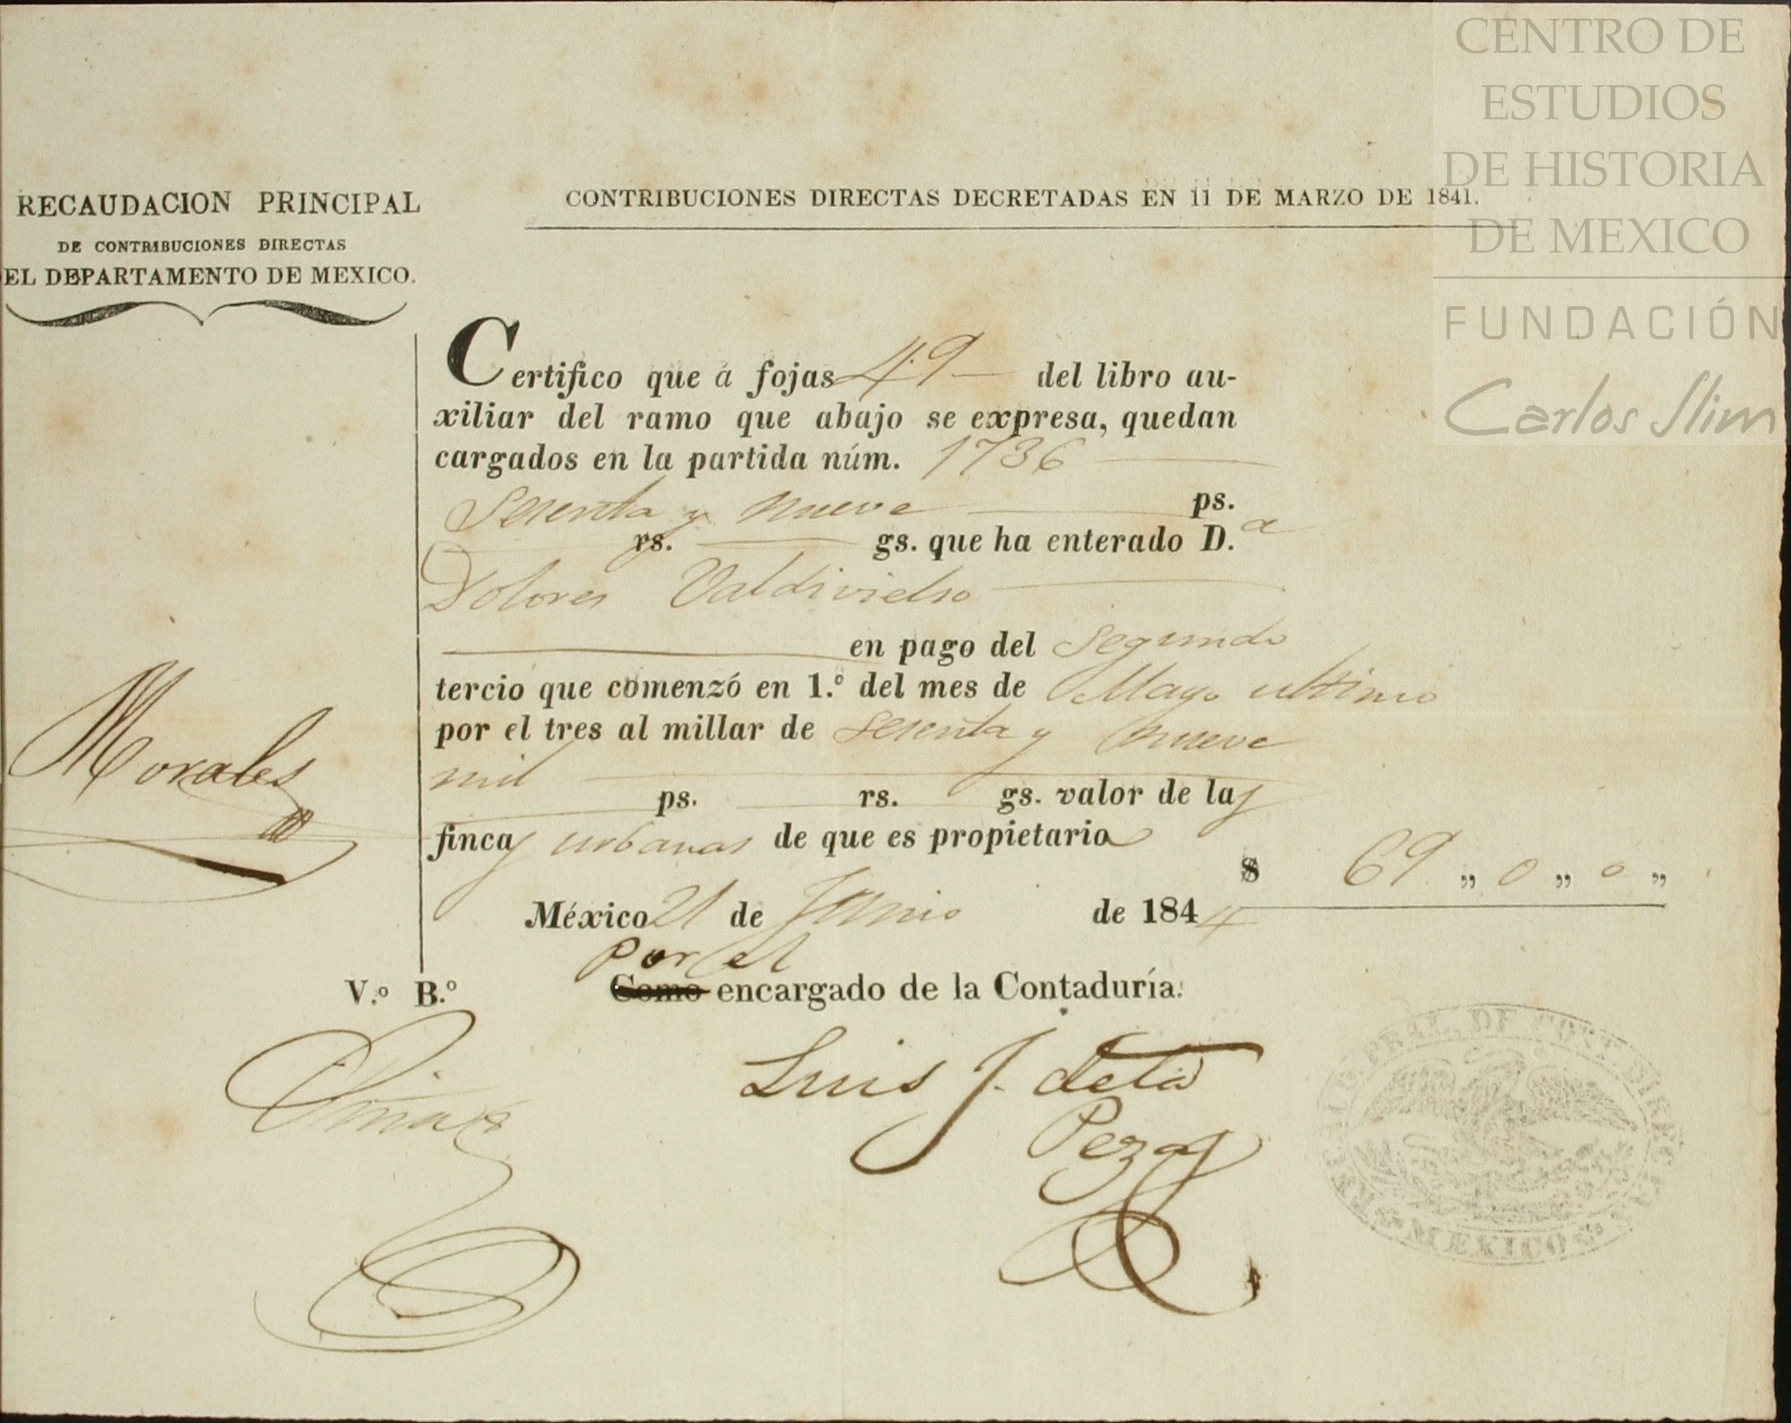 CENTRO DE
ESTUDIOS
DE HISTORIA
DE MEXICO
FUNDACIÓN
Carlos Slim
RECAUDACION PRINCIPAL
DE CONTRIBUCIONES DIRECTAS
EL DEPARTAMENTO DE MEXICO.
CONTRIBUCIONES DIRECTAS DECRETADAS EN 11 DE MARZO DE 1841.
Certifico que á fojas 49 del libro au-
xiliar del ramo que abajo se expresa, quedan
cargados en la partida núm. 1736
Sesenta y nueve ps.
rs. gs. que ha enterado D.a
Dolores Valdivielso
en pago del segundo
tercio que comenzó en 1.º del mes de Mayo ultimo
por el tres al millar de sesenta y nueve
mil
ps. rs. gs. valor de las
fincas urbanas de que es propietaria
$ 69 ,, 0 ,, 0 ,,
México 21 de Junio de 1844
Por el
V.º B.º Como encargado de la Contaduría.
Morales
Luis J. de la
Peza
MEXICO